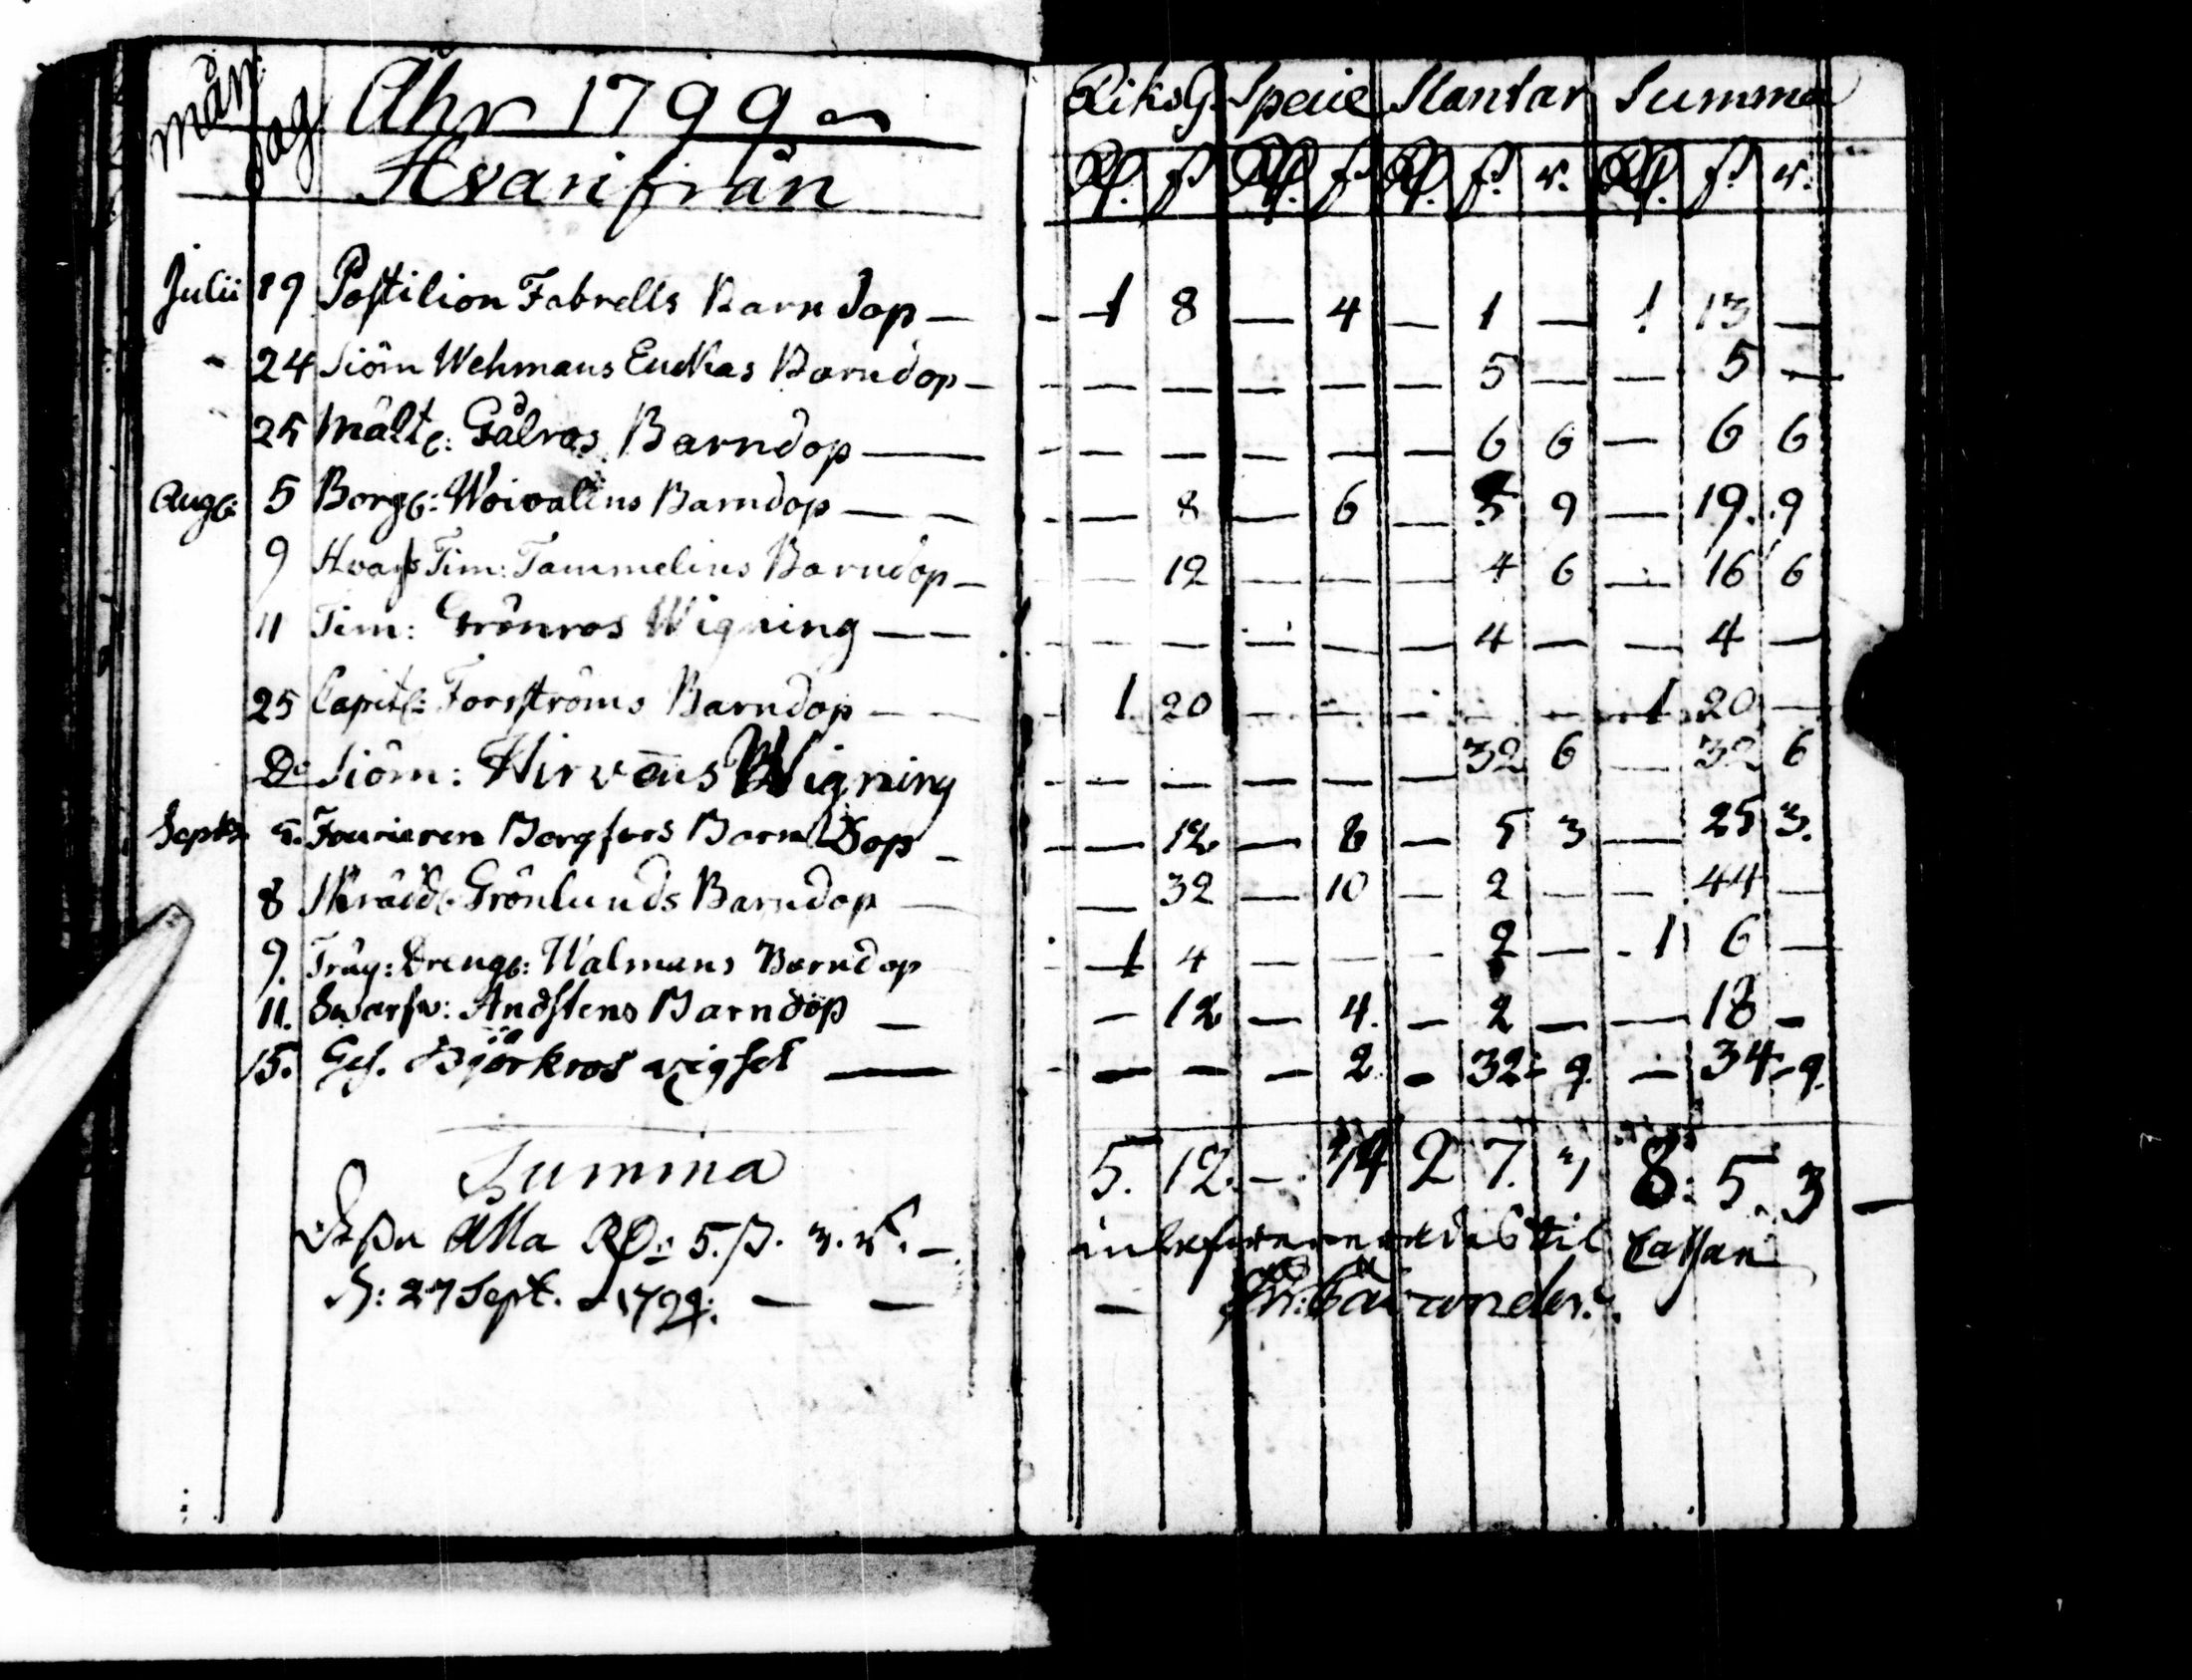 Mån Dag Åhr 1799 RiksG. Specie Slantar Summa
Hvarifrån Rd. ß Rd. ß Rd. ß. r. Rd. ß. r.
Julii 19 Postilion Fabrells Barndop — - 1 8 — 4 — 1 — 1 13 —
- 24 Siöm Wehmans Enckas Barndop — - — — — — — 5 — — 5 —
25 Målt: Gålros Barndop — - — — — — — 6 6 — 6 6
Aug: 5 Borg: Woivalins Barndop — — - — 8 — 6 — 5 9 — 19. 9
9 Hvarfs Tim: Tammelins Barndop — — 12 — — — 4 6 — 16 6
11 Tim: Grönros Wigning — — - — — — — — 4 — — 4 —
25 Capit: Forsströms Barndop — — - 1 20 — — — — — 1 20 —
Do Siöm: Hirvens Wigning - — — — — — 32 6 — 32 6
Septr 5. Fourieren Bergfors Barn Dop — - — 12 — 8 — 5 3 — 25 3.
8 Skrädd: Grönlunds Barndop — — 32 — 10 — 2 — — 44 —
9. Träg: Dreng: Walmans Barndop - 1 4 — — — 2 — - 1 6 —
11. Swarfv: Andstens Barndop — — 12 — 4. — 2 — — 18 —
15. Ges. Björkros vigsel — - — — — 2. — 32 - 9. — 34 - 9.
Summa 5. 12. — 34 2 7. 3 8: 5. 3 —
Åtta RD: 5. ß. 3. r. — til Cassan
D: 27 Sept. 1799. — — —